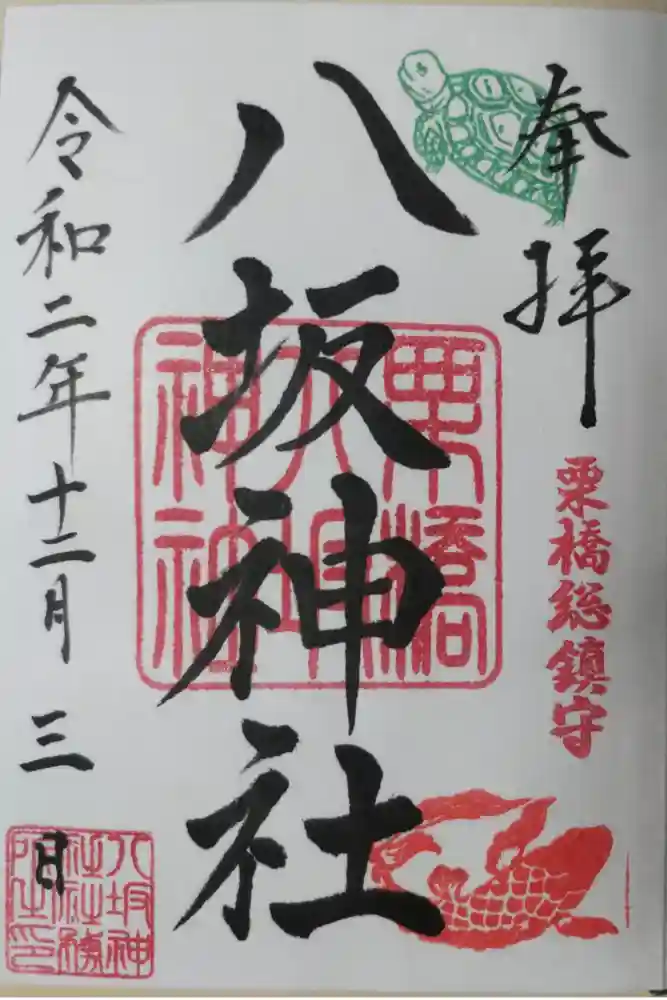 奉拝
栗橋総鎮守
八坂神社
栗橋
八坂
神社
令和二年十二月三日
八坂神
社社務
所之印